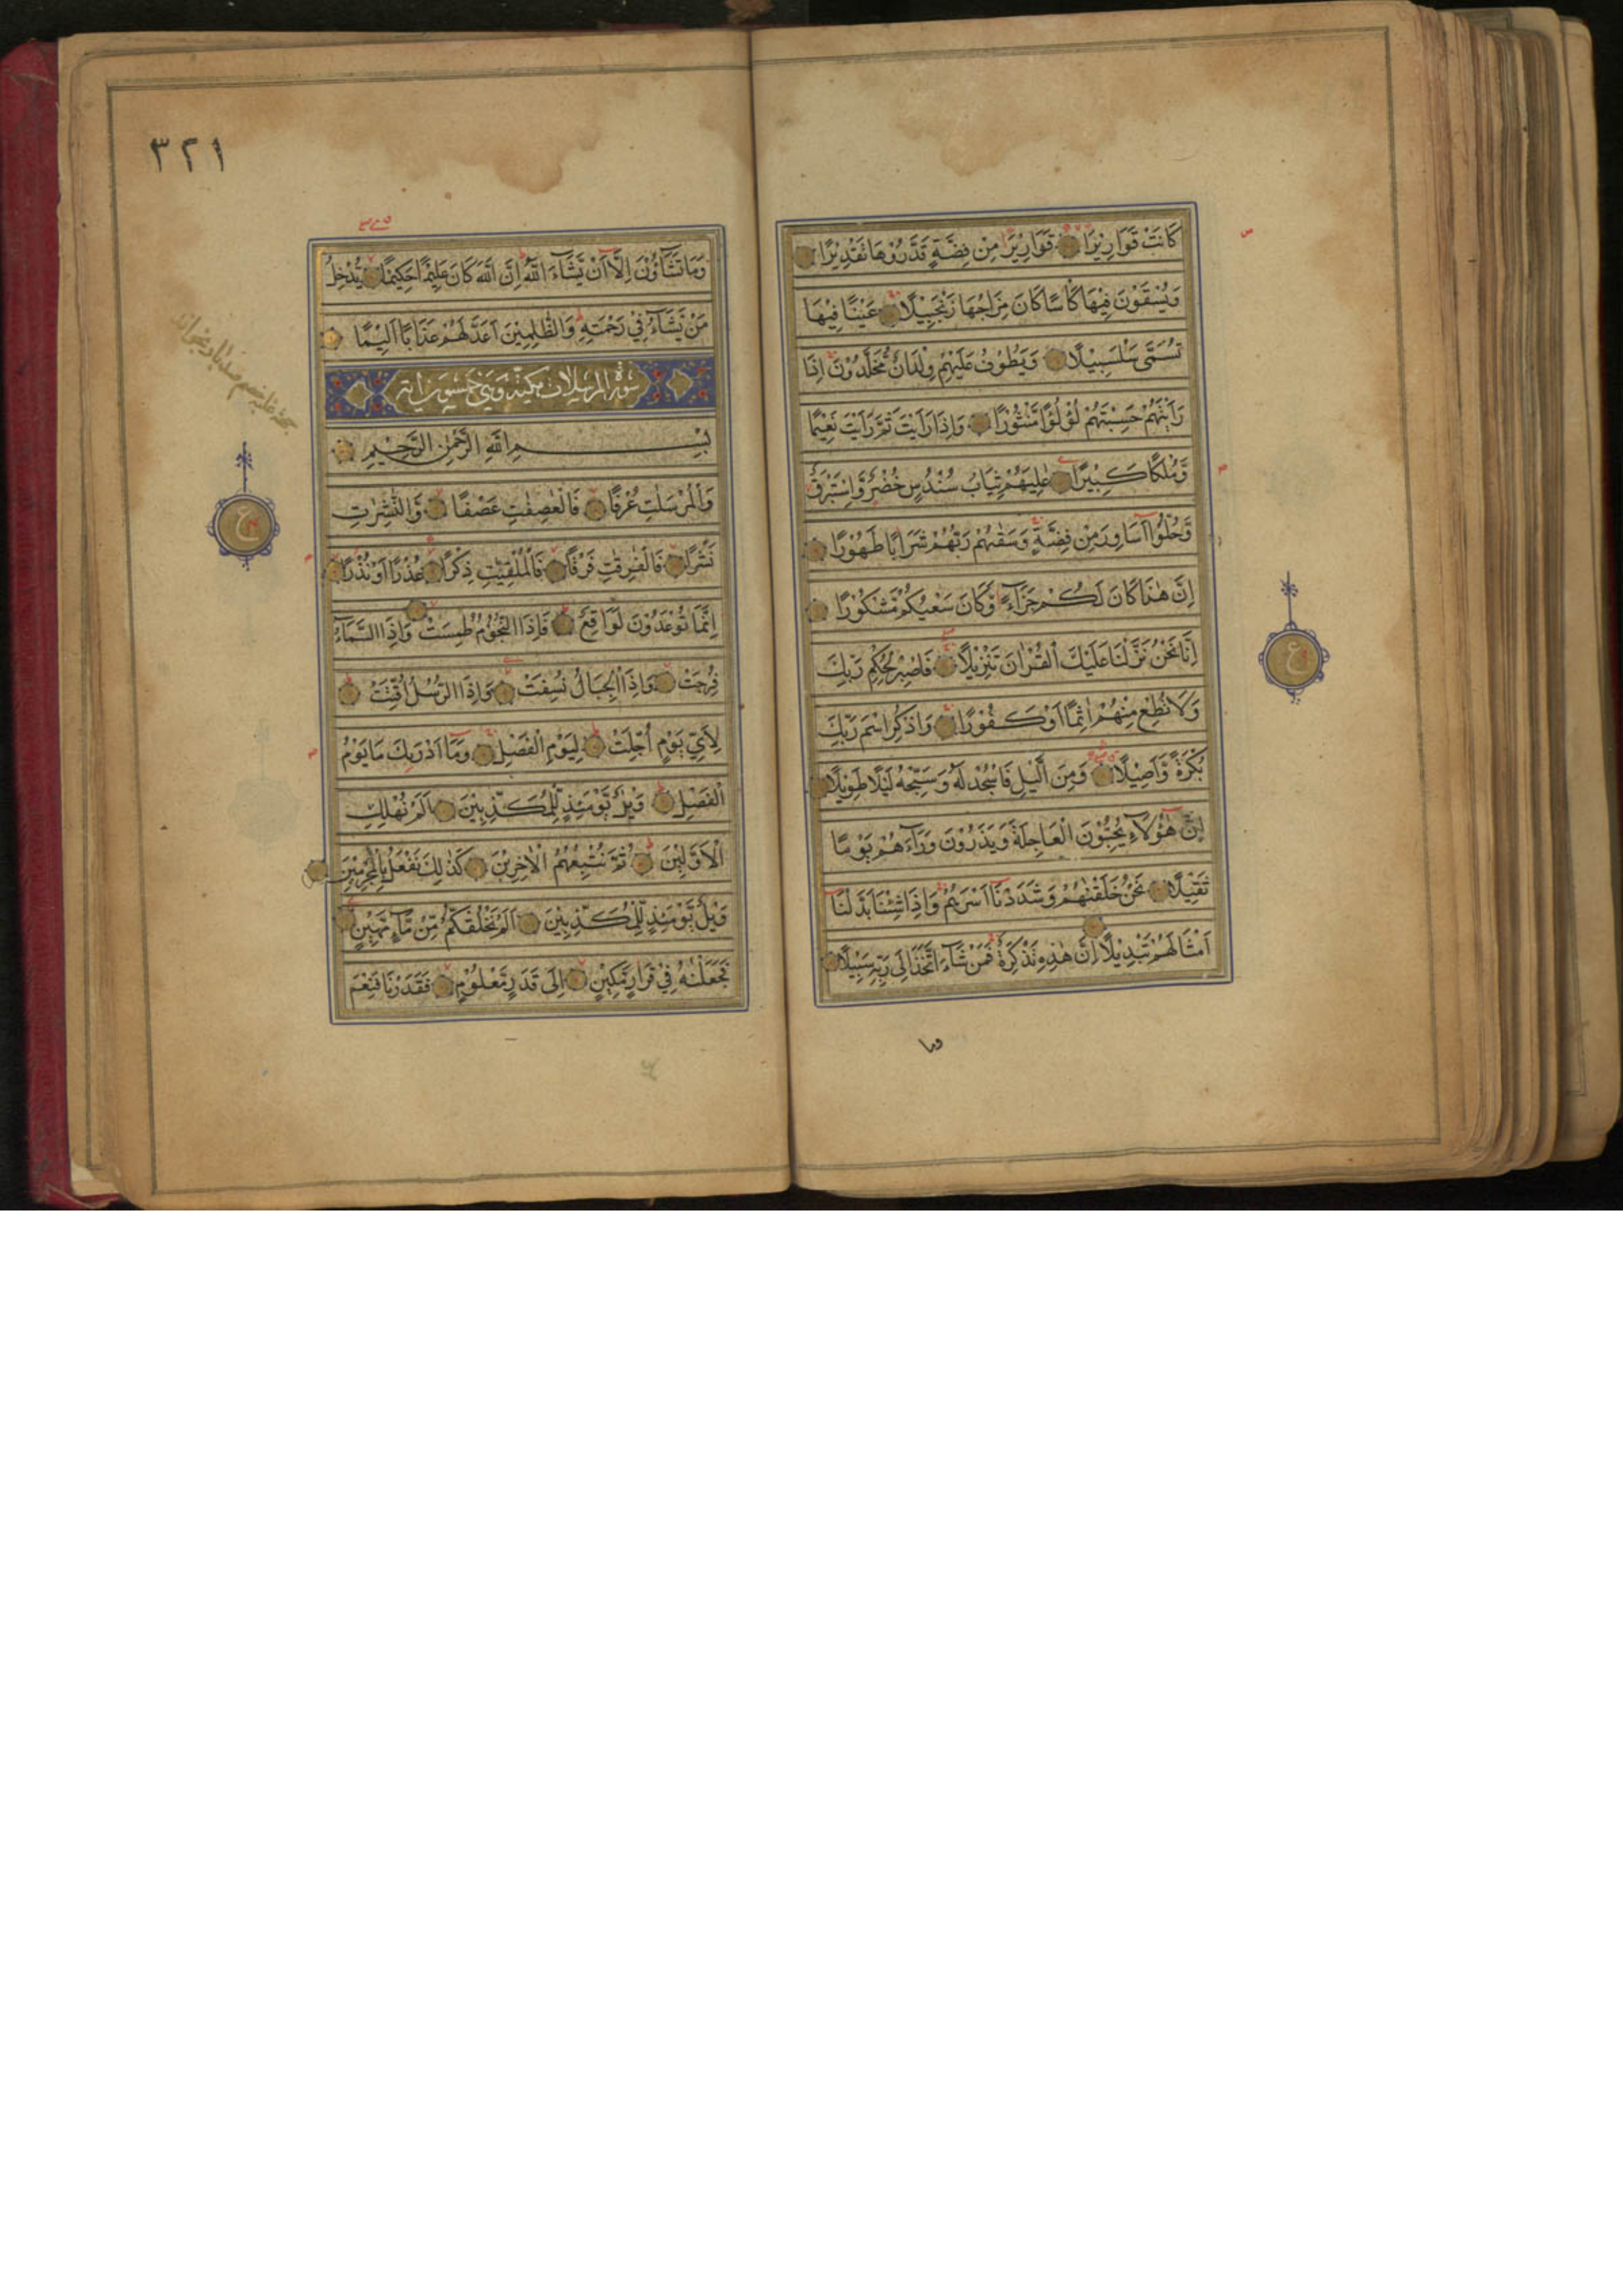 كَانَتْ قَوَارِيْرَا قَوَارِيْرَا مِنْ فِضَّةٍ قَدَّرُوْهَا تَقْدِيْرًا
وَيُسْقَوْنَ فِيْهَا كَأْسًا كَانَ مِزَاجُهَا زَنْجَبِيْلًا عَيْنًا فِيْهَا
تُسَمّٰى سَلْسَبِيْلًا وَيَطُوْفُ عَلَيْهِمْ وِلْدَانٌ مُخَلَّدُوْنَ اِذَا
رَاَيْتَهُمْ حَسِبْتَهُمْ لُؤْلُؤًا مَّنْثُوْرًا وَاِذَا رَاَيْتَ ثَمَّ رَاَيْتَ نَعِيْمًا
وَّمُلْكًا كَبِيْرًا عٰلِيَهُمْ ثِيَابُ سُنْدُسٍ خُضْرٌ وَّاِسْتَبْرَقٌ
وَّحُلُّوْا اَسَاوِرَ مِنْ فِضَّةٍ وَسَقٰىهُمْ رَبُّهُمْ شَرَابًا طَهُوْرًا
اِنَّ هٰذَا كَانَ لَكُمْ جَزَآءً وَّكَانَ سَعْيُكُمْ مَّشْكُوْرًا
اِنَّا نَحْنُ نَزَّلْنَا عَلَيْكَ الْقُرْاٰنَ تَنْزِيْلًا فَاصْبِرْ لِحُكْمِ رَبِّكَ
وَلَا تُطِعْ مِنْهُمْ اٰثِمًا اَوْ كَفُوْرًا وَاذْكُرِ اسْمَ رَبِّكَ
بُكْرَةً وَّاَصِيْلًا وَمِنَ الَّيْلِ فَاسْجُدْ لَهُ وَسَبِّحْهُ لَيْلًا طَوِيْلًا
اِنَّ هٰؤُلَآءِ يُحِبُّوْنَ الْعَاجِلَةَ وَيَذَرُوْنَ وَرَآءَهُمْ يَوْمًا
ثَقِيْلًا نَحْنُ خَلَقْنٰهُمْ وَشَدَدْنَا اَسْرَهُمْ وَاِذَا شِئْنَا بَدَّلْنَا
اَمْثَالَهُمْ تَبْدِيْلًا اِنَّ هٰذِهِ تَذْكِرَةٌ فَمَنْ شَآءَ اتَّخَذَ اِلٰى رَبِّهِ سَبِيْلًا
وما
٣٢١
وَمَا تَشَآؤُنَ اِلَّا اَنْ يَّشَآءَ اللّٰهُ اِنَّ اللّٰهَ كَانَ عَلِيْمًا حَكِيْمًا يُّدْخِلُ
مَنْ يَّشَآءُ فِيْ رَحْمَتِهِ وَالظّٰلِمِيْنَ اَعَدَّ لَهُمْ عَذَابًا اَلِيْمًا
سورة المرسلات مكية وهي خمسون اية
بِسْمِ اللّٰهِ الرَّحْمٰنِ الرَّحِيْمِ
وَالْمُرْسَلٰتِ عُرْفًا فَالْعٰصِفٰتِ عَصْفًا وَّالنّٰشِرٰتِ
نَشْرًا فَالْفٰرِقٰتِ فَرْقًا فَالْمُلْقِيٰتِ ذِكْرًا عُذْرًا اَوْ نُذْرًا
اِنَّمَا تُوْعَدُوْنَ لَوَاقِعٌ فَاِذَا النُّجُوْمُ طُمِسَتْ وَاِذَا السَّمَآءُ
فُرِجَتْ وَاِذَا الْجِبَالُ نُسِفَتْ وَاِذَا الرُّسُلُ اُقِّتَتْ
لِاَيِّ يَوْمٍ اُجِّلَتْ لِيَوْمِ الْفَصْلِ وَمَا اَدْرٰىكَ مَا يَوْمُ
الْفَصْلِ وَيْلٌ يَّوْمَئِذٍ لِّلْمُكَذِّبِيْنَ اَلَمْ نُهْلِكِ
الْاَوَّلِيْنَ ثُمَّ نُتْبِعُهُمُ الْاٰخِرِيْنَ كَذٰلِكَ نَفْعَلُ بِالْمُجْرِمِيْنَ
وَيْلٌ يَّوْمَئِذٍ لِّلْمُكَذِّبِيْنَ اَلَمْ نَخْلُقْكُمْ مِّنْ مَّآءٍ مَّهِيْنٍ
فَجَعَلْنٰهُ فِيْ قَرَارٍ مَّكِيْنٍ اِلٰى قَدَرٍ مَّعْلُوْمٍ فَقَدَرْنَا فَنِعْمَ
ع
ع